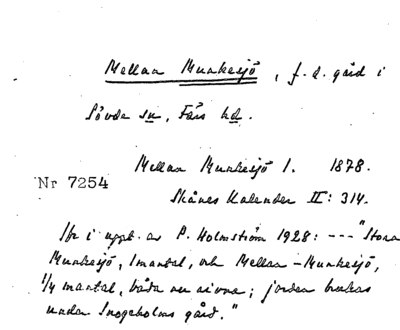 Mellan Munkesjö, f. d. gård i
Sövde sn, Färs hd.
Mellan Munkesjö 1. 1878.
Nr 7254
Skånes Kalender II: 314.
Jfr i uppt. av P. Holmström 1928: --- "Stora
Munkesjö, 1 mantal, och Mellan-Munkesjö,
1/4 mantal, båda nu rivna; jorden brukas
under Snogeholms gård."